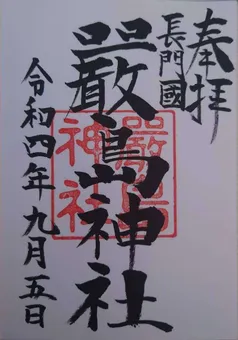 奉拝
長門國
嚴島神社
嚴島神社
令和四年九月五日